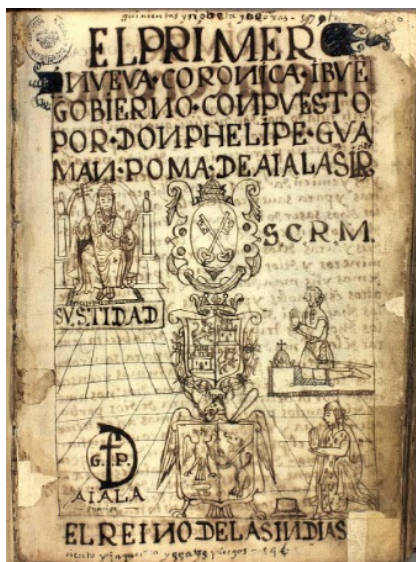 EL PRIMER
NVEVA·CORONICA·IBVE
GOBIERNO·CONPVESTO
POR·DON PHELIPE·GVA
MAN·POMA·DE AIALA SIR
S.C.R.M.
SV S.TIDAD
G. P.
AIALA
EL REINO DE LAS INDIAS